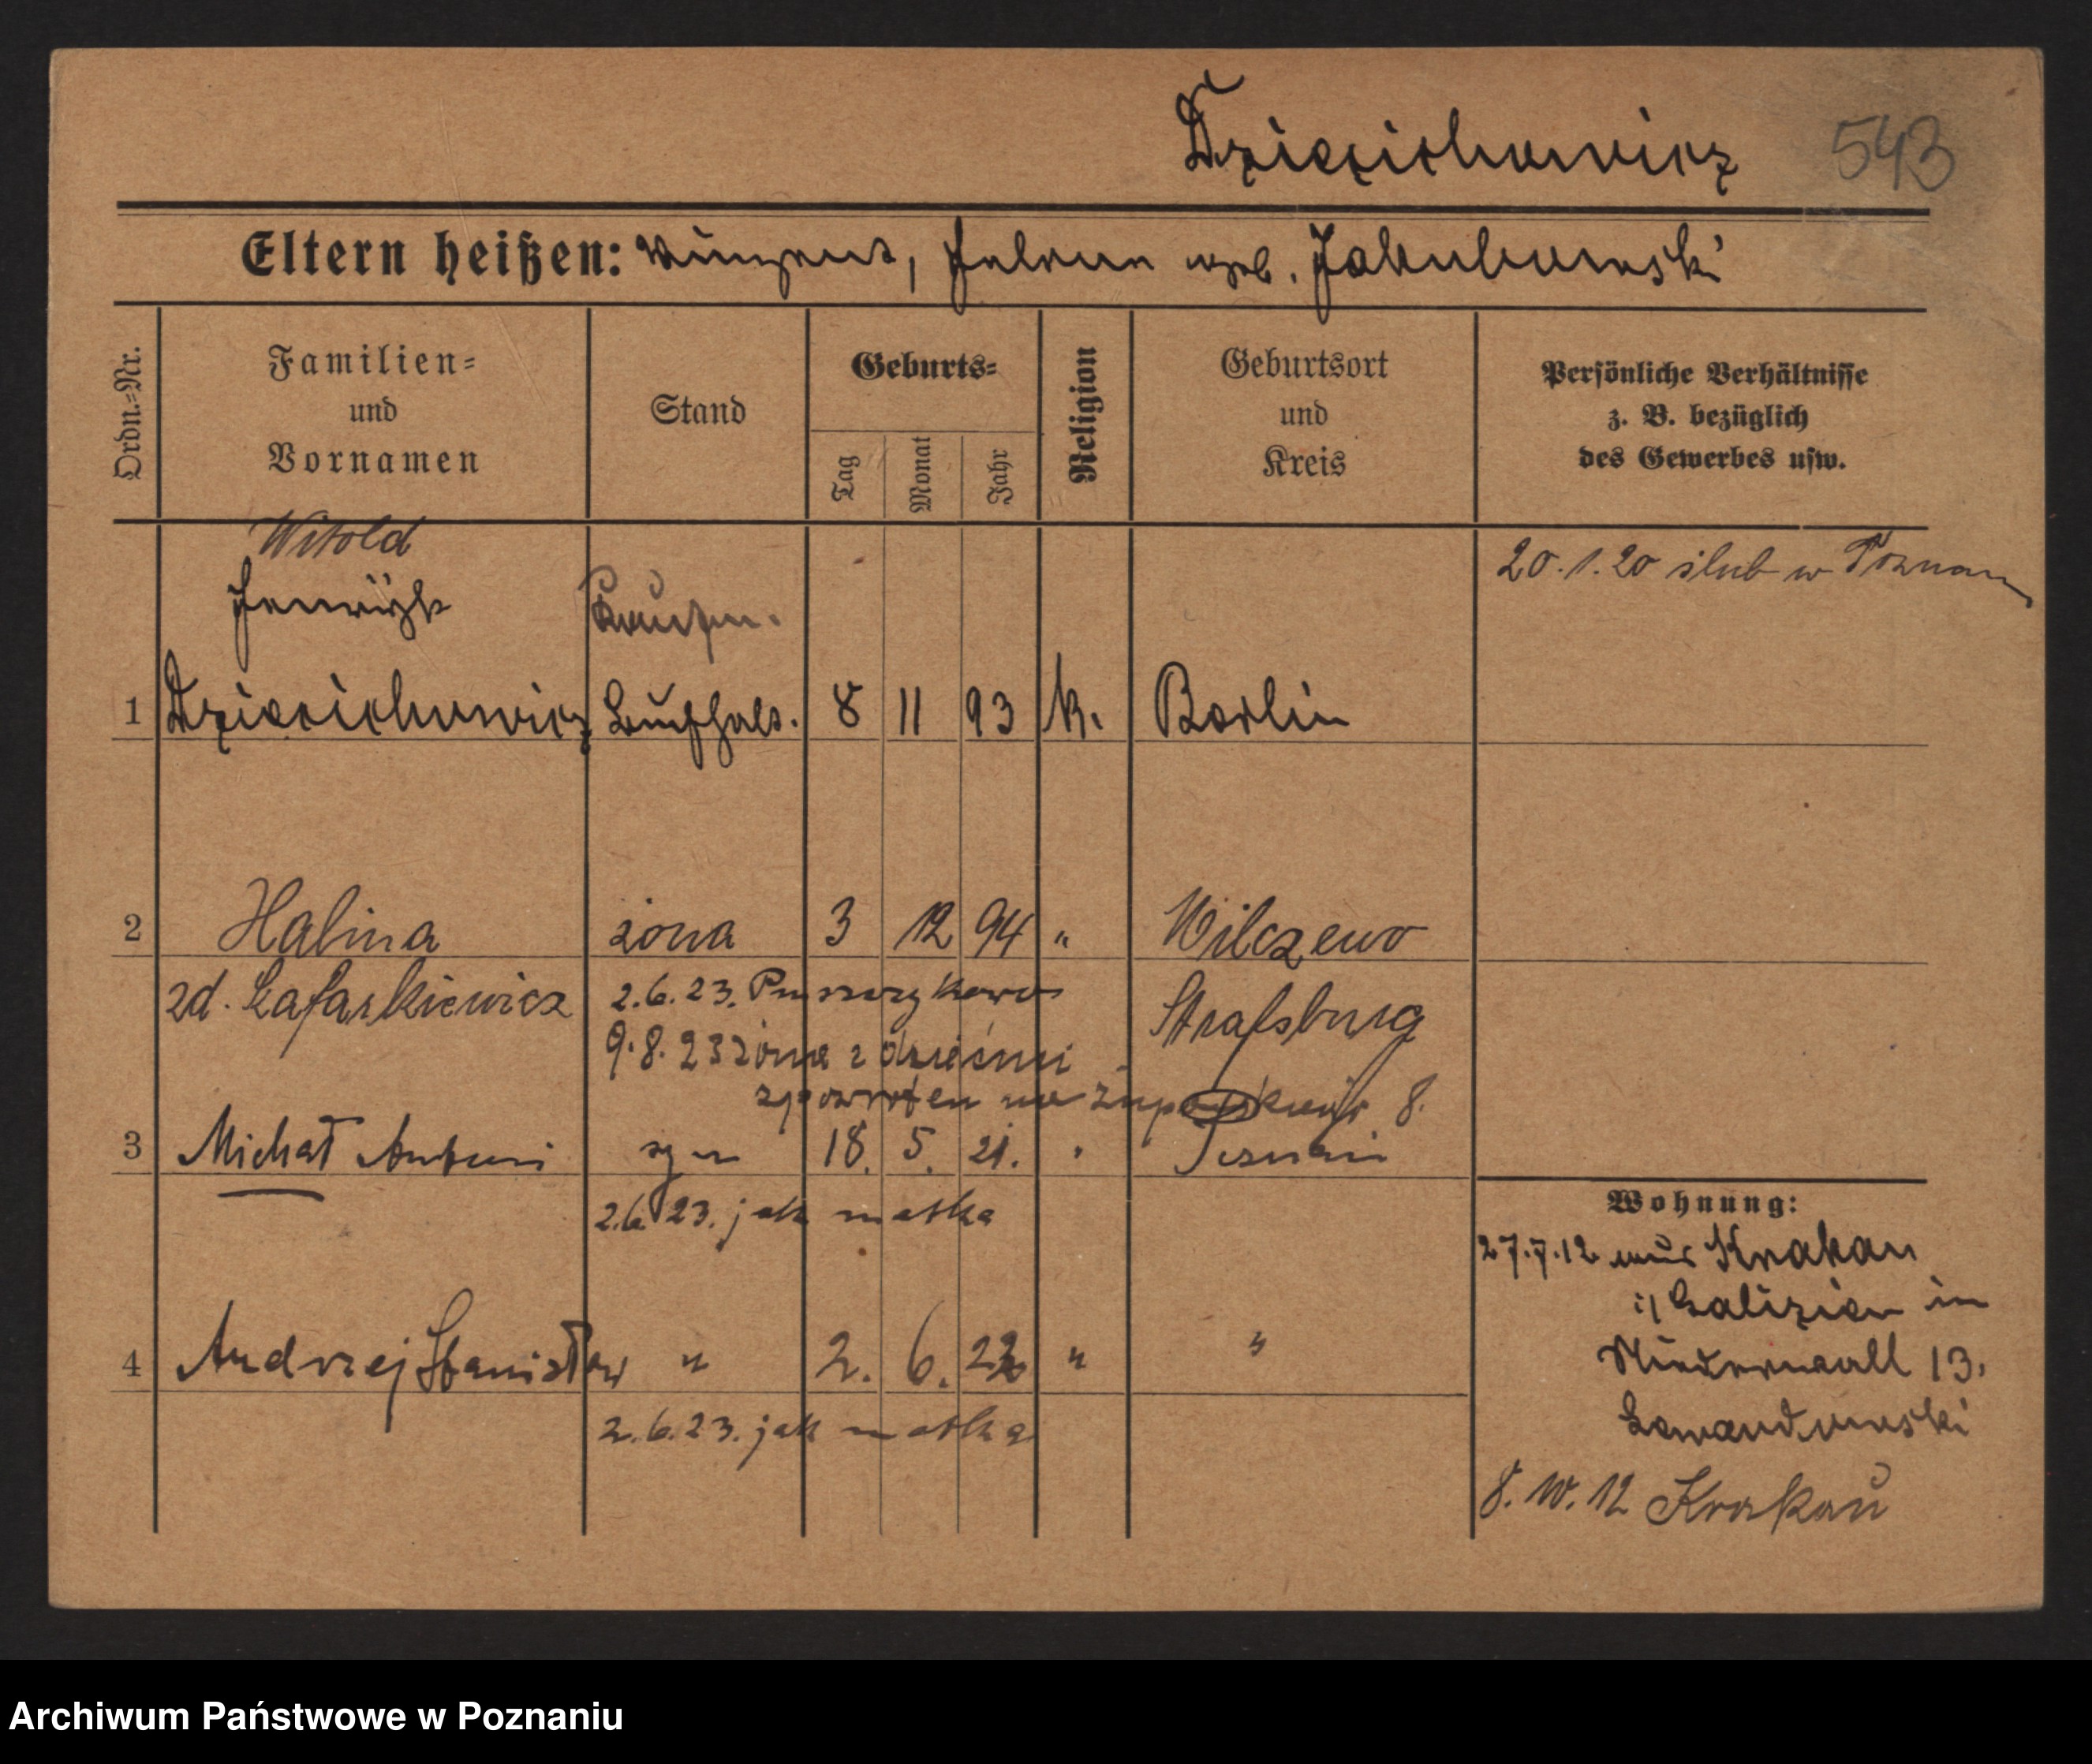 Dzieciuchowicz 543
Eltern heißen: Vinzent, Helene geb. Jakubowski
Ordn.=Nr.
Familien=
und
Vornamen
Stand
Geburts=
Tag
Monat
Jahr
Religion
Geburtsort
und
Kreis
Persönliche Verhältnisse
z. B. bezüglich
des Gewerbes usw.
Witold
20.1.20 ślub w Poznan
Kaufm.
1 8 11 93 k. Berlin
2 Halina żona 3 12 94 " Wilczewo
zd. Łafarkiewicz 2.6.23. Puszczykowo Straßburg
9.8.23 żona z dziećmi
zpowrotem na 8.
3 Michał Antoni syn 18. 5. 21. " Poznań
2.6.23. jak matka
Wohnung:
27.7.12 aus Krakau
i/ Galizien in
Niederwall 13.
Lewandowski
4 Andrzej Stanisław " 2. 6. 22 " "
2.6.23. jak matka
8. 10. 12 Krakau
Archiwum Państwowe w Poznaniu